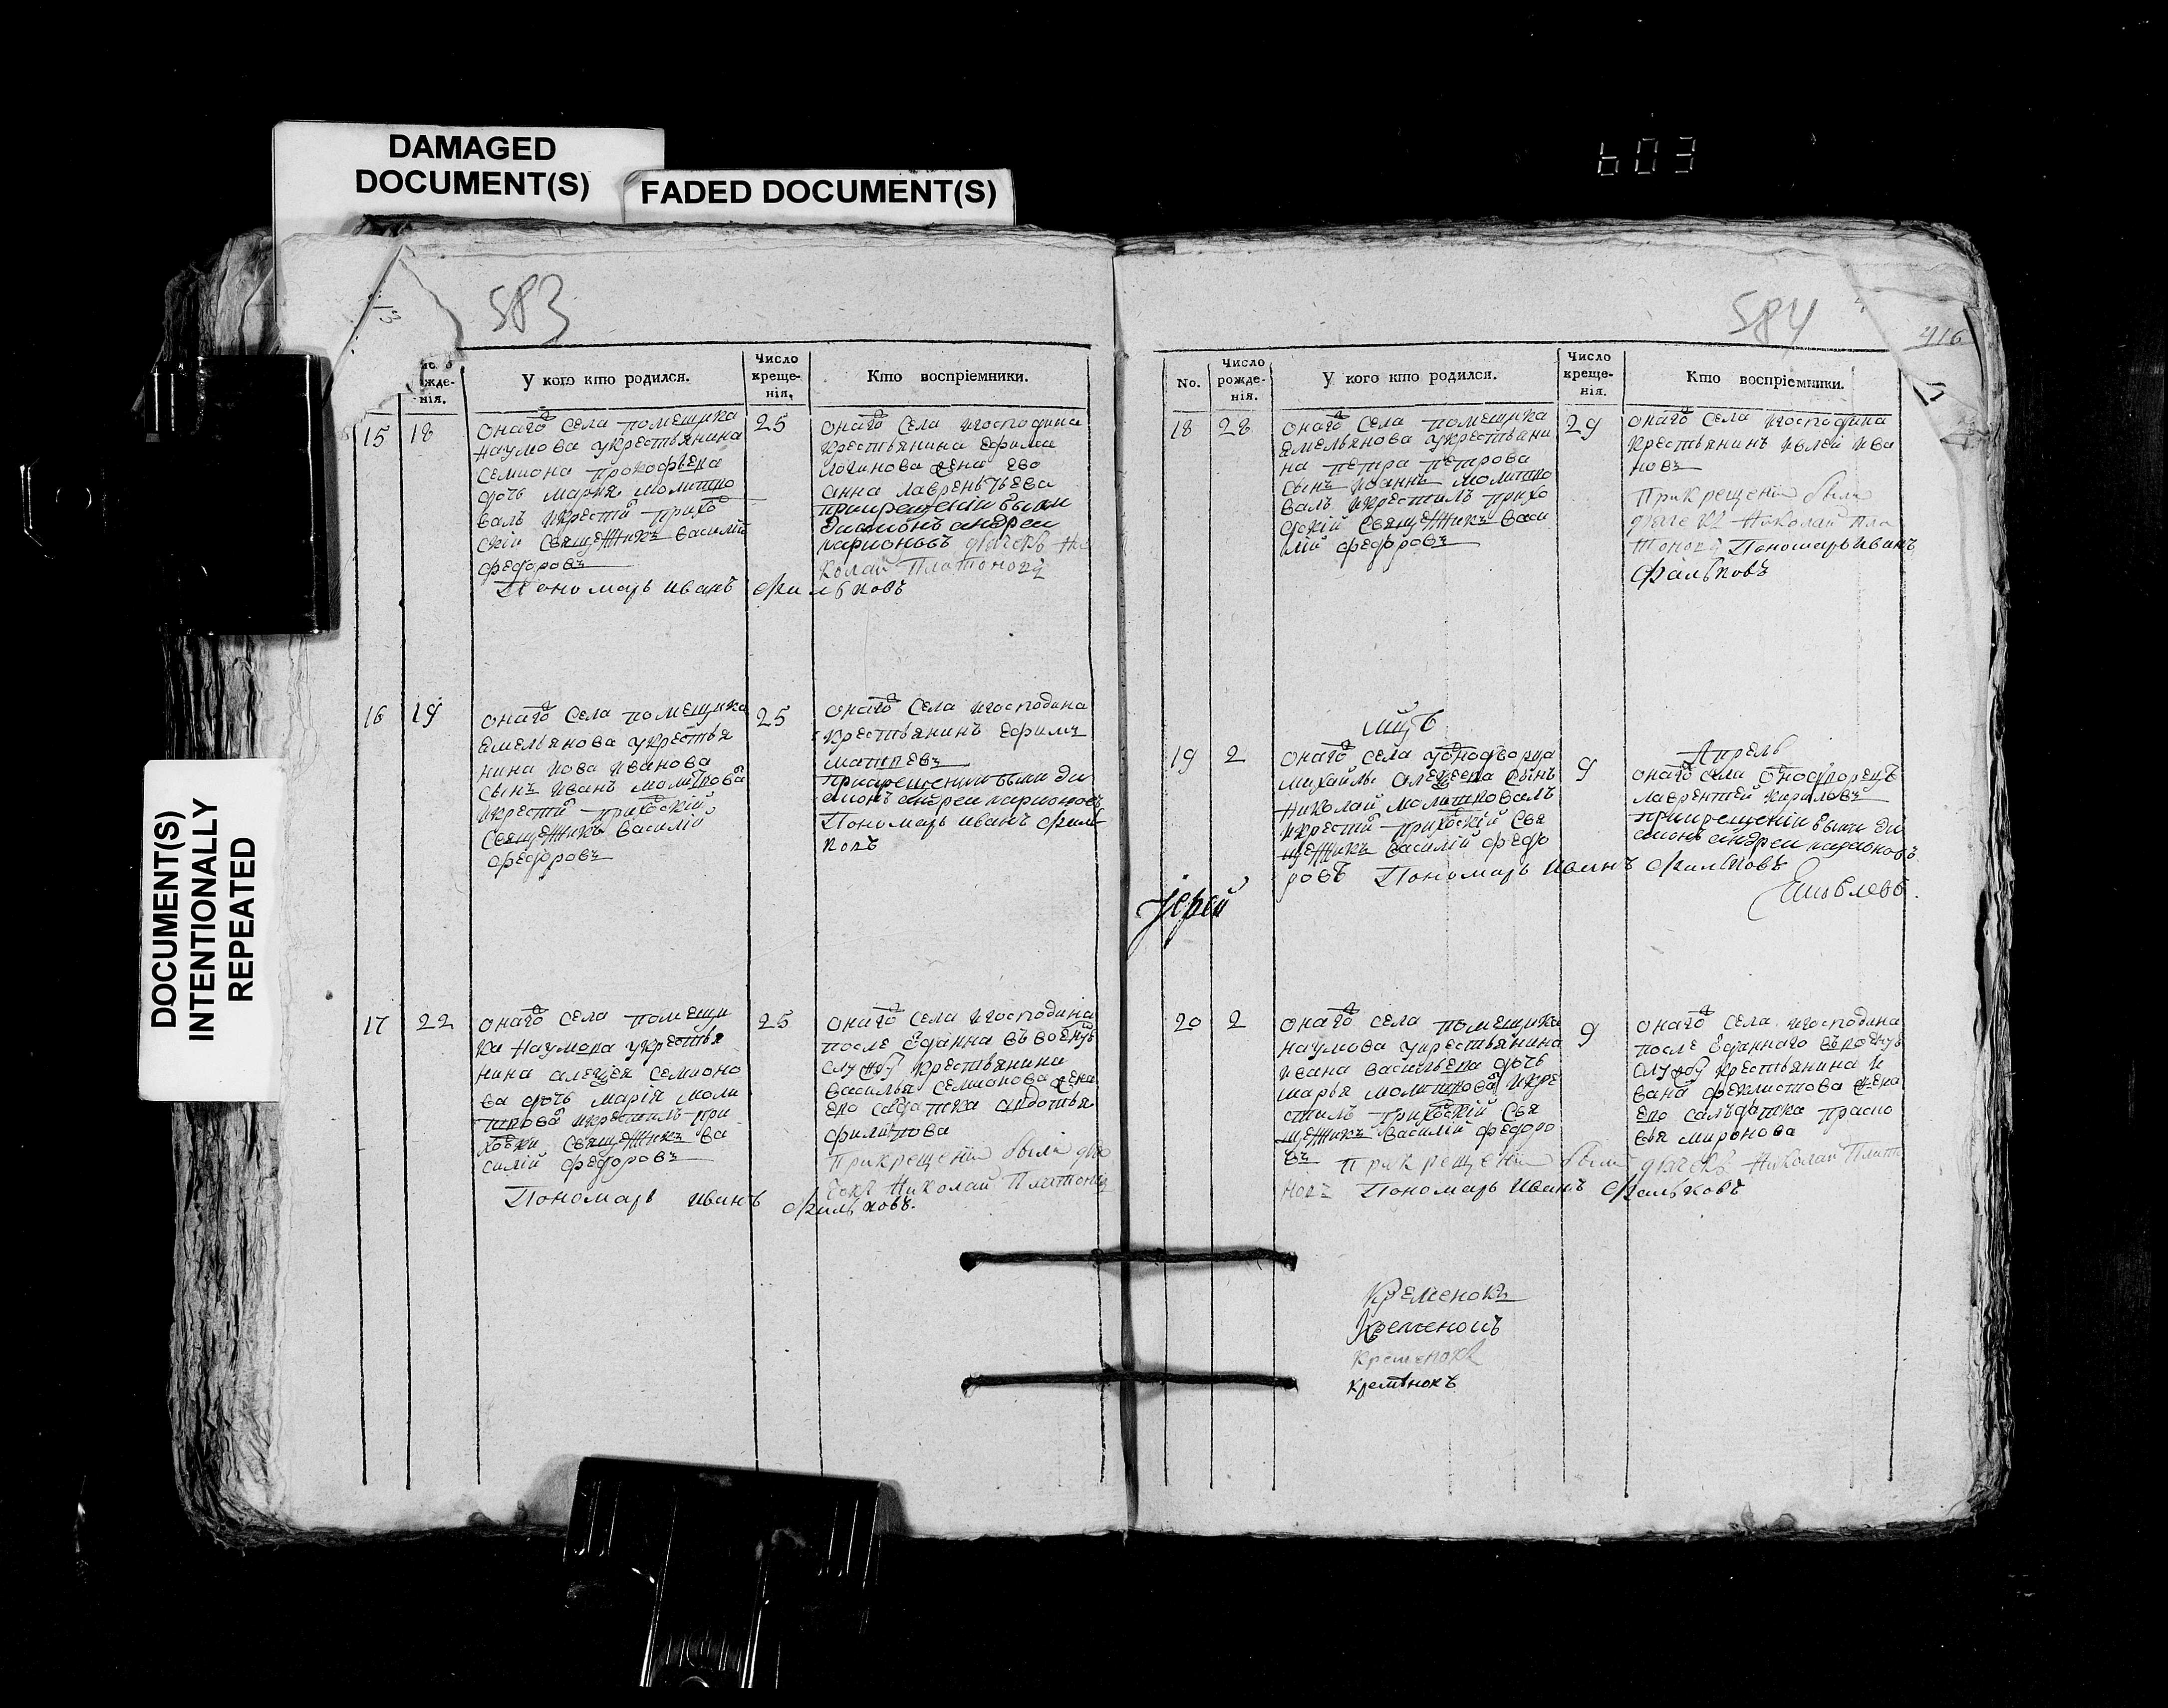 DAMAGED
DOCUMENT(S)
FADED DOCUMENT(S)
DOCUMENT(S)
INTENTIONALLY
REPEATED
603
583
нія.
У кого кто родился.
Число
креще-
нія.
Кто воспріемники.
15
18
онаго села помещика
наумова укрестьянина
семиона прокофьева
дочь марія молитво
валъ икрести прихо
скіи священникъ василій
федоровъ
25
онаго села игосподина
крестьянина ефима
логинова жена ево
анна лаврентьева
прикрещеніи были
диаконъ андреи
иларионовъ дьячекъ Ни
колай Платоновъ
Пономарь иванъ фильковъ
16
19
онаго села помещика
емельянова укрестья
нина иова иванова
сынъ иванъ молитвова
икрести приходскій
священникъ василій
федоровъ
25
онаго села игосподина
крестьянинъ ефимъ
прикрещении были ди
аконъ андреи иларионовъ
Пономарь иванъ филь
ковъ
17
22
онаго села помещи
ка наумова укрестья
нина алексея семионо
ва дочь марія моли
твова икрестилъ при
ходски священникъ ва
силій федоровъ
25
онаго села игосподина
после отданна въ воену
службу крестьянина
василья семионова жена
ево салдатка авдотья
филипова
Прикрещеніи были дья
чекъ Николай Платоновъ
Пономарь иванъ фильковъ.
584
916
No.
Число
рожде-
нія.
У кого кто родился.
Число
креще-
нія.
Кто воспріемники.
18
28
онаго села помещика
емельянова укрестьяни
на петра петрова
сынъ иоаннъ молитво
валъ икрестилъ прихо
дскій священникъ васи
лій федоровъ
29
онаго села игосподина
крестьянинъ иелей ива
новъ
Прикрещеніи были
дьячекъ Николай Пла
тоновъ Пономарь иванъ
фильковъ
19
2
онаго села уоднодворца
михайлы алексеева сынъ
николай молитвовалъ
икрести приходскій свя
щенникъ василій федо
ровъ Пономарь иванъ фильковъ
9
Апрель
онаго села однодворецъ
лаврентей кириловъ
прикрещеніи были ди
аконъ андреи иларионовъ
Іерей
Яковлевъ.
20
2
онаго села помещика
наумова укрестьянина
ивана васильева дочь
марья молитвова икре
стилъ приходскій свя
щенникъ василій федоро
въ Прикрещеніи были дьячекъ Николай Плато
новъ Пономарь иванъ фильковъ
9
онаго села игосподина
после отданнаго въ воену
службу крестьянина и
вана феклистова жена
ево салъдатка праско
вья миронова
Кременокъ
Кременокъ
Кременокъ
Кременокъ